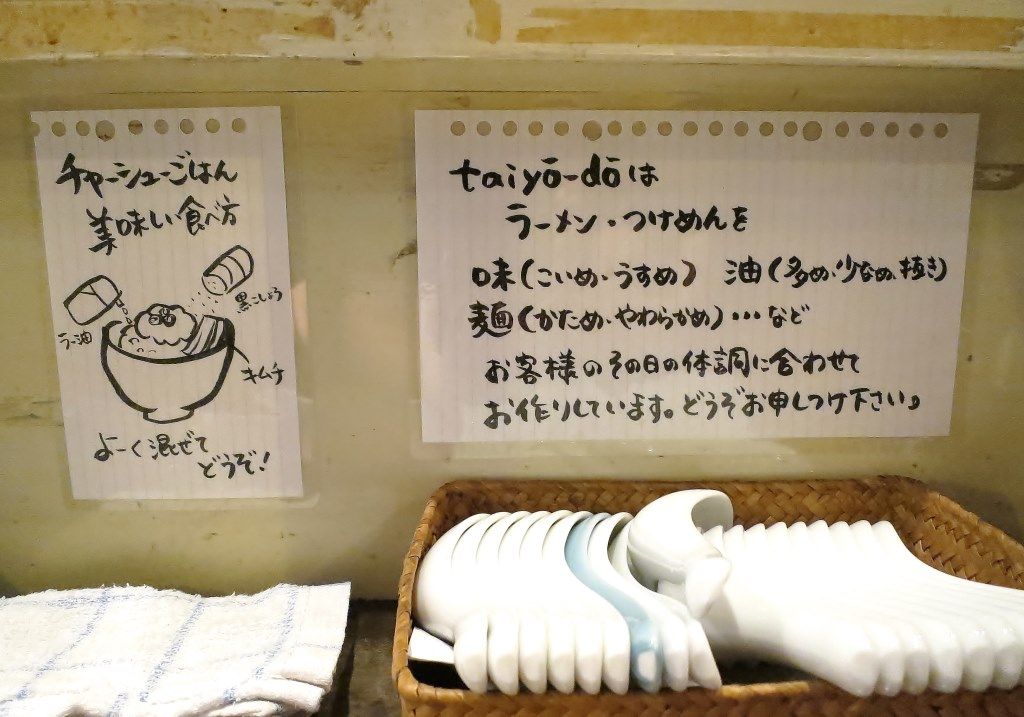 チャーシューごはん
美味しい食べ方
ラー油
黒こしょう
キムチ
よーく混ぜて
どうぞ!
taiyō-dōは
ラーメン・つけめんを
味(こいめ・うすめ) 油(多め・少なめ・抜き)
麺(かため・やわらかめ)・・・など
お客様のその日の体調に合わせて
お作りしています。どうぞお申しつけ下さい。